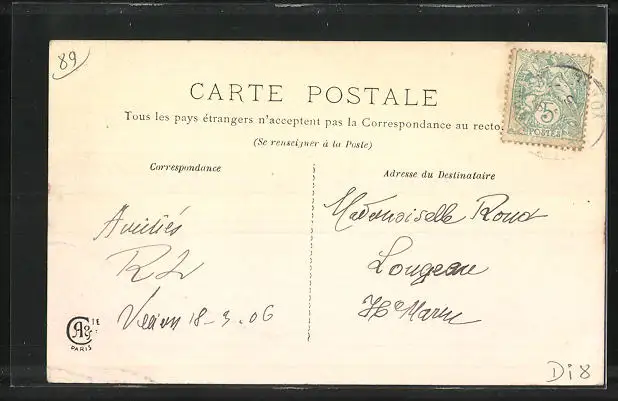 89
CARTE POSTALE
Tous les pays étrangers n'acceptent pas la Correspondance au recto.
(Se renseigner à la Poste)
Correspondance
Adresse du Destinataire
5
POSTES
Amitiés
18-3.06
Mademoiselle Roux
Longeau
Hte Marne
PARIS
Di8